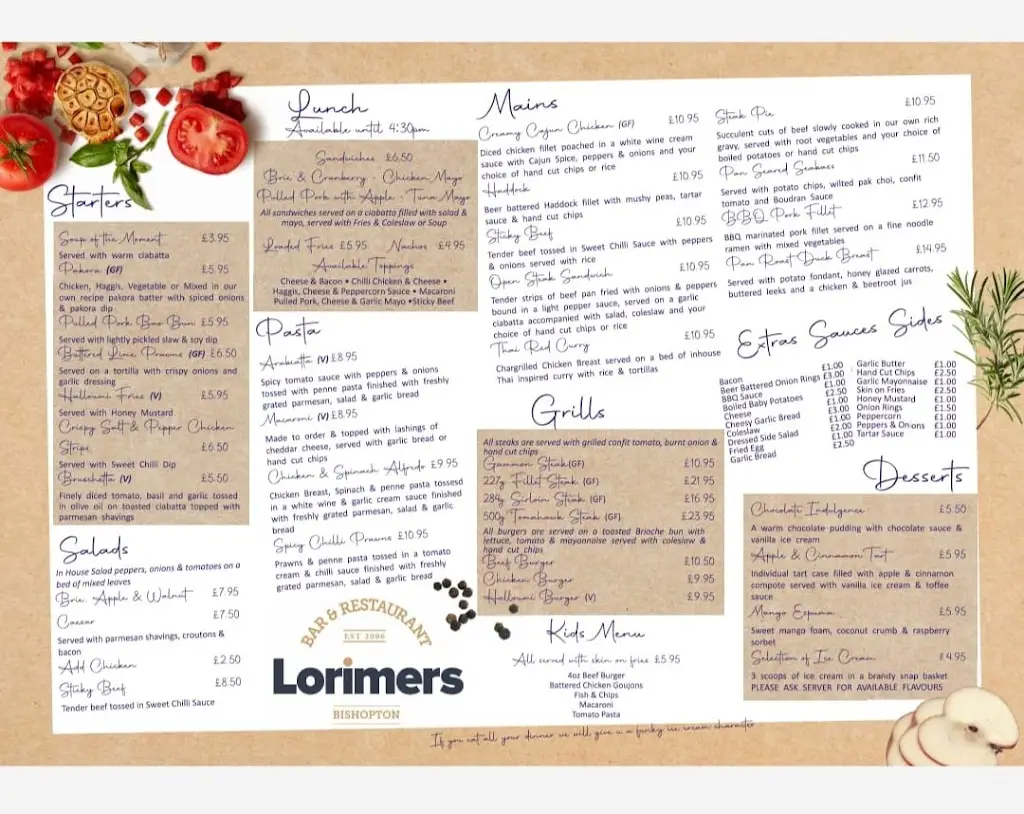 Starters
Soup of the Moment £3.95
Served with warm ciabatta
Pakora (GF) £5.95
Chicken, Haggis, Vegetable or Mixed in our
own recipe pakora batter with spiced onions
& pakora dip
Pulled Pork Bao Bun £5.95
Served with lightly pickled slaw & soy dip
Buttered Lime Prawns (GF) £6.50
Served on a tortilla with crispy onions and
garlic dressing
Halloumi Fries (V) £5.95
Served with Honey Mustard
Crispy Salt & Pepper Chicken
Strips £6.50
Served with Sweet Chilli Dip
Bruschetta (V) £5.50
Finely diced tomato, basil and garlic tossed
in olive oil on toasted ciabatta topped with
parmesan shavings
Salads
In House Salad peppers, onions & tomatoes on a
bed of mixed leaves
Brie, Apple & Walnut £7.95
Caesar £7.50
Served with parmesan shavings, croutons &
bacon
Add Chicken £2.50
Sticky Beef £8.50
Tender beef tossed in Sweet Chilli Sauce
Lunch
Available until 4:30pm
Sandwiches £6.50
Brie & Cranberry - Chicken Mayo
Pulled Pork with Apple - Tuna Mayo
All sandwiches served on a ciabatta filled with salad &
mayo, served with Fries & Coleslaw or Soup
Loaded Fries £5.95 Nachos £4.95
Available Toppings
Cheese & Bacon • Chilli Chicken & Cheese •
Haggis, Cheese & Peppercorn Sauce • Macaroni
Pulled Pork, Cheese & Garlic Mayo •Sticky Beef
Pasta
Arabiatta (V) £8.95
Spicy tomato sauce with peppers & onions
tossed with penne pasta finished with freshly
grated parmesan, salad & garlic bread
Macaroni (V) £8.95
Made to order & topped with lashings of
cheddar cheese, served with garlic bread or
hand cut chips
Chicken & Spinach Alfredo £9.95
Chicken Breast, Spinach & penne pasta tossesd
in a white wine & garlic cream sauce finished
with freshly grated parmesan, salad & garlic
bread
Spicy Chilli Prawns £10.95
Prawns & penne pasta tossed in a tomato
cream & chilli sauce finished with freshly
grated parmesan, salad & garlic bread
BAR & RESTAURANT
EST 2006
Lorimers
BISHOPTON
Mains
Creamy Cajun Chicken (GF) £10.95
Diced chicken fillet poached in a white wine cream
sauce with Cajun Spice, peppers & onions and your
choice of hand cut chips or rice
Haddock £10.95
Beer battered Haddock fillet with mushy peas, tartar
sauce & hand cut chips
Sticky Beef £10.95
Tender beef tossed in Sweet Chilli Sauce with peppers
& onions served with rice
Open Steak Sandwich £10.95
Tender strips of beef pan fried with onions & peppers
bound in a light pepper sauce, served on a garlic
ciabatta accompanied with salad, coleslaw and your
choice of hand cut chips or rice
Thai Red Curry £10.95
Chargrilled Chicken Breast served on a bed of inhouse
Thai inspired curry with rice & tortillas
Steak Pie £10.95
Succulent cuts of beef slowly cooked in our own rich
gravy, served with root vegetables and your choice of
boiled potatoes or hand cut chips
Pan Seared Seabass £11.50
Served with potato chips, wilted pak choi, confit
tomato and Boudran Sauce
BBQ Pork Fillet £12.95
BBQ marinated pork fillet served on a fine noodle
ramen with mixed vegetables
Pan Roast Duck Breast £14.95
Served with potato fondant, honey glazed carrots,
buttered leeks and a chicken & beetroot jus
Grills
All steaks are served with grilled confit tomato, burnt onion &
hand cut chips
Gammon Steak(GF) £10.95
227g Fillet Steak (GF) £21.95
284g Sirloin Steak (GF) £16.95
500g Tomahawk Steak (GF) £23.95
All burgers are served on a toasted Brioche bun with
lettuce, tomato & mayonnaise served with coleslaw &
hand cut chips
Beef Burger £10.50
Chicken Burger £9.95
Halloumi Burger (V) £9.95
Kids Menu
All served with skin on fries £5.95
4oz Beef Burger
Battered Chicken Goujons
Fish & Chips
Macaroni
Tomato Pasta
If you eat all your dinner we will give u a funky ice cream character
Extras Sauces Sides
Bacon £1.00
Beer Battered Onion Rings £3.00
BBQ Sauce £1.00
Boiled Baby Potatoes £2.50
Cheese £1.00
Cheesy Garlic Bread £3.00
Coleslaw £1.00
Dressed Side Salad £2.00
Fried Egg £1.00
Garlic Bread £2.50
Garlic Butter £1.00
Hand Cut Chips £2.50
Garlic Mayonnaise £1.00
Skin on Fries £2.50
Honey Mustard £1.00
Onion Rings £1.50
Peppercorn £1.00
Peppers & Onions £1.00
Tartar Sauce £1.00
Desserts
Chocolate Indulgence £5.50
A warm chocolate pudding with chocolate sauce &
vanilla ice cream
Apple & Cinnamon Tart £5.95
Individual tart case filled with apple & cinnamon
compote served with vanilla ice cream & toffee
sauce
Mango Espuma £5.95
Sweet mango foam, coconut crumb & raspberry
sorbet
Selection of Ice Cream £4.95
3 scoops of ice cream in a brandy snap basket
PLEASE ASK SERVER FOR AVAILABLE FLAVOURS